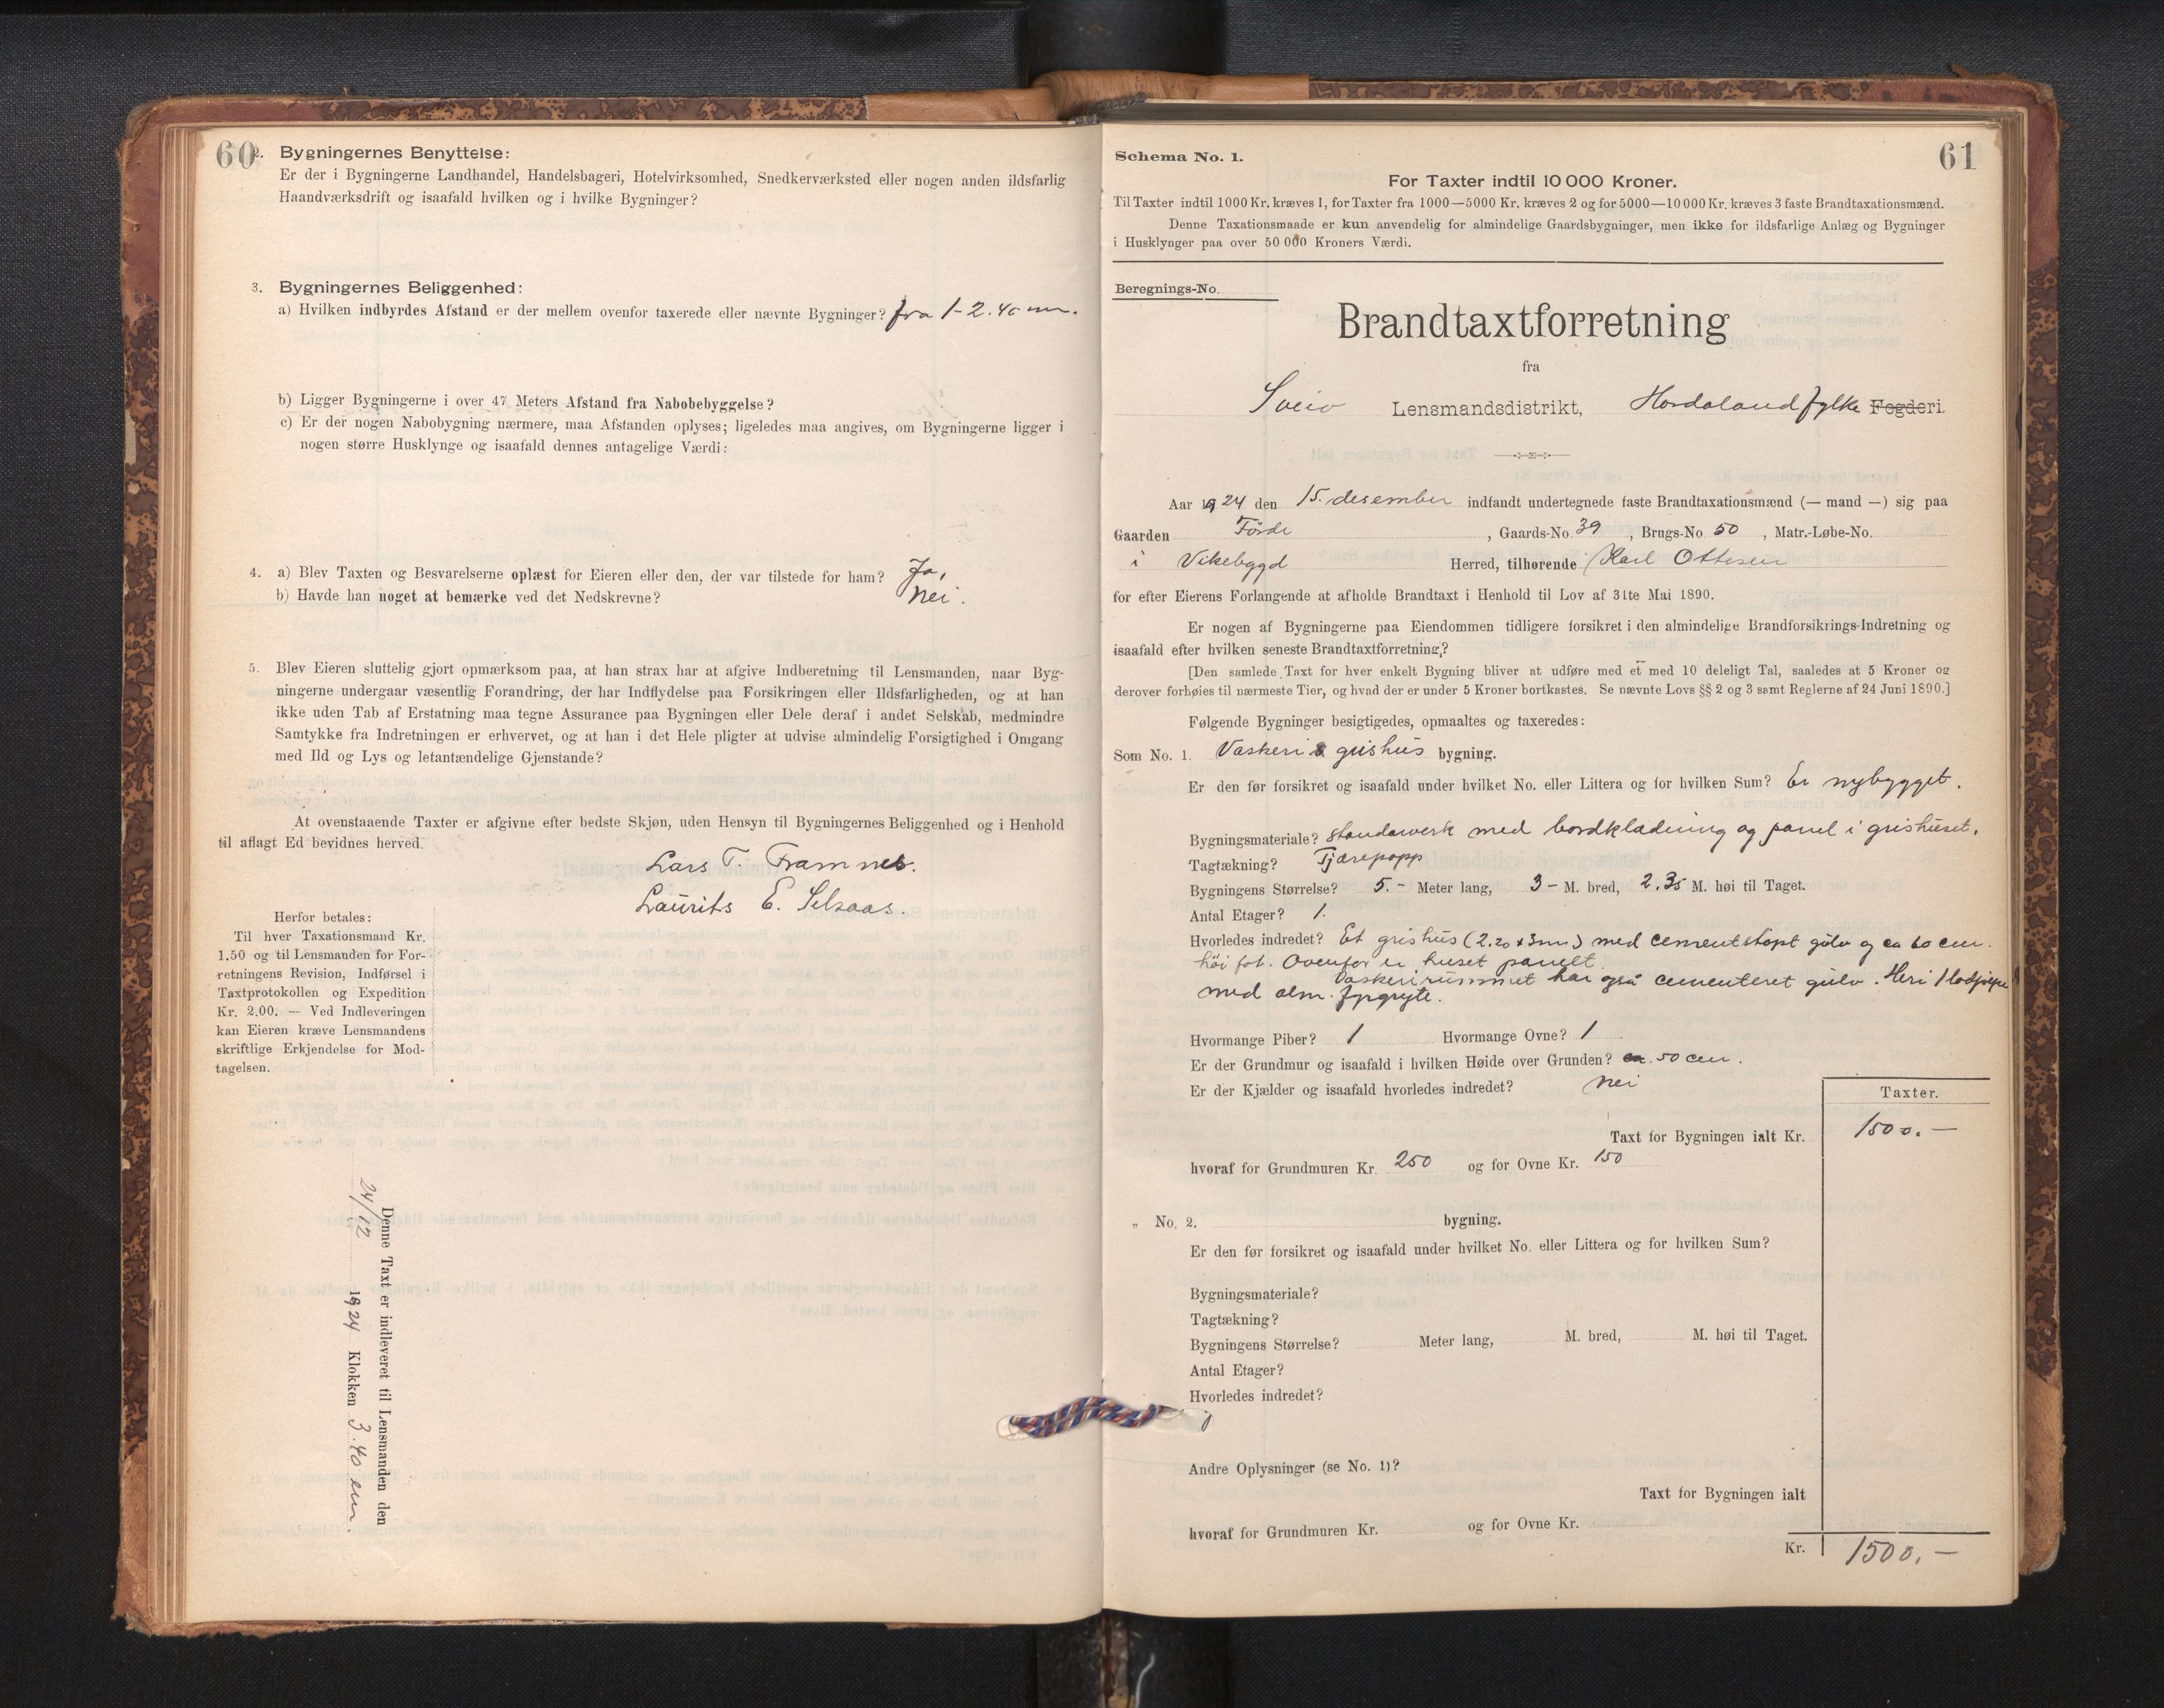 60
2. Bygningernes Benyttelse:
Er der i Bygningerne Landhandel, Handelsbageri, Hotelvirksomhed, Snedkerværksted eller nogen anden ildsfarlig
Haandværksdrift og isaafald hvilken og i hvilke Bygninger?
3. Bygningernes Beliggenhed:
a) Hvilken indbyrdes Afstand er der mellem ovenfor taxerede eller nævnte Bygninger? fra 1-2.40 m.
b) Ligger Bygningerne i over 47 Meters Afstand fra Nabobebyggelse?
c) Er der nogen Nabobygning nærmere, maa Afstanden oplyses; ligeledes maa angives, om Bygningerne ligger i
nogen større Husklynge og isaafald dennes antagelige Værdi:
4. a) Blev Taxten og Besvarelserne oplæst for Eieren eller den, der var tilstede for ham? Ja,
b) Havde han noget at bemærke ved det Nedskrevne? Nei.
5. Blev Eieren sluttelig gjort opmærksom paa, at han strax har at afgive Indberetning til Lensmanden, naar Byg-
ningerne undergaar væsentlig Forandring, der har Indflydelse paa Forsikringen eller Ildsfarligheden, og at han
ikke uden Tab af Erstatning maa tegne Assurance paa Bygningen eller Dele deraf i andet Selskab, medmindre
Samtykke fra Indretningen er erhvervet, og at han i det Hele pligter at udvise almindelig Forsigtighed i Omgang
med Ild og Lys og letantændelige Gjenstande?
At ovenstaaende Taxter er afgivne efter bedste Skjøn, uden Hensyn til Bygningernes Beliggenhed og i Henhold
til aflagt Ed bevidnes herved.
Lars T. Framnes.
Laurits E. Selsaas.
Herfor betales:
Til hver Taxationsmand Kr.
1.50 og til Lensmanden for For-
retningens Revision, Indførsel i
Taxtprotokollen og Expedition
Kr. 2,00. — Ved Indleveringen
kan Eieren kræve Lensmandens
skriftlige Erkjendelse for Mod-
tagelsen.
Denne Taxt er indleveret til Lensmanden den
24/12 1924 Klokken 3.40 em.
Schema No. 1.
61
For Taxter indtil 10 000 Kroner.
Til Taxter indtil 1000 Kr. kræves 1, for Taxter fra 1000—5000 Kr. kræves 2 og for 5000—10 000 Kr. kræves 3 faste Brandtaxationsmænd.
Denne Taxationsmaade er kun anvendelig for almindelige Gaardsbygninger, men ikke for ildsfarlige Anlæg og Bygninger
i Husklynger paa over 50 000 Kroners Værdi.
Beregnings-No.
Brandtaxtforretning
fra
Sveio Lensmandsdistrikt, Hordaland fylke Fogderi.
Aar 1924 den 15. desember indfandt undertegnede faste Brandtaxationsmænd (— mand —) sig paa
Gaarden Förde, Gaards-No. 39, Brugs-No. 50, Matr.-Løbe-No.
i Vikebygd Herred, tilhørende Karl Ottesen
for efter Eierens Forlangende at afholde Brandtaxt i Henhold til Lov af 31te Mai 1890.
Er nogen af Bygningerne paa Eiendommen tidligere forsikret i den almindelige Brandforsikrings-Indretning og
isaafald efter hvilken seneste Brandtaxtforretning?
[Den samlede Taxt for hver enkelt Bygning bliver at udføre med et med 10 deleligt Tal, saaledes at 5 Kroner og
derover forhøies til nærmeste Tier, og hvad der er under 5 Kroner bortkastes. Se nævnte Lovs §§ 2 og 3 samt Reglerne af 24 Juni 1890.]
Følgende Bygninger besigtigedes, opmaaltes og taxeredes:
Som No. 1. Vaskeri & grishus bygning.
Er den før forsikret og isaafald under hvilket No. eller Littera og for hvilken Sum? Er nybygget.
Bygningsmateriale? standarverk med bordkladning og panel i grishuset.
Tagtækning? Tjærepapp
Bygningens Størrelse? 5.- Meter lang, 3- M. bred, 2.35 M. høi til Taget.
Antal Etager? 1.
Hvorledes indredet? Et grishus (2.20 x 3 m) med cementstøpt gulv og ca 60 cm.
höi fot. Ovenfor er huset panelt.
Vaskerirummet har også cementeret gulv. Heri 1 lodpipe
med alm. fyrgryte.
Hvormange Piber? 1 Hvormange Ovne? 1
Er der Grundmur og isaafald i hvilken Høide over Grunden? ca. 50 cm.
Er der Kjælder og isaafald hvorledes indredet? Nei
Taxter.
Taxt for Bygningen ialt Kr. 1500.—
hvoraf for Grundmuren Kr. 250 og for Ovne Kr. 150
„ No. 2. bygning.
Er den før forsikret og isaafald under hvilket No. eller Littera og for hvilken Sum?
Bygningsmateriale?
Tagtækning?
Bygningens Størrelse? Meter lang, M. bred, M. høi til Taget.
Antal Etager?
Hvorledes indredet?
Andre Oplysninger (se No. 1)?
Taxt for Bygningen ialt
hvoraf for Grundmuren Kr. og for Ovne Kr.
Kr. 1500.—